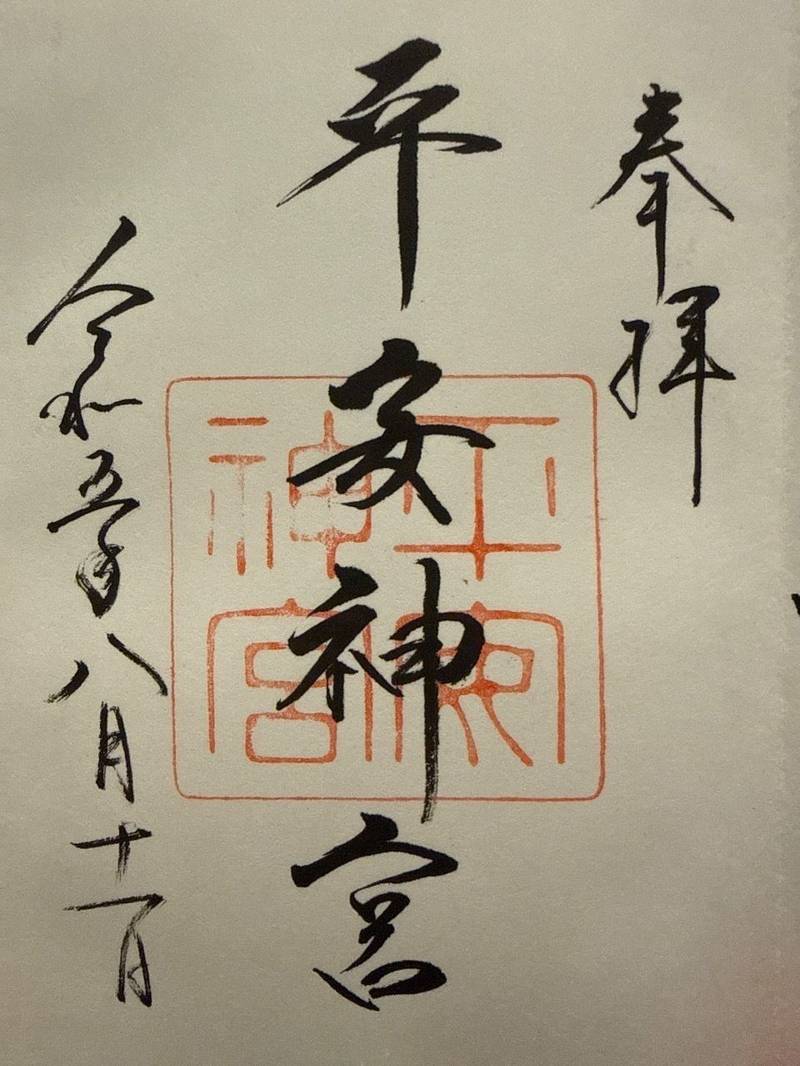 奉拝
平安神宮
平安
神宮
令和五年八月十一日